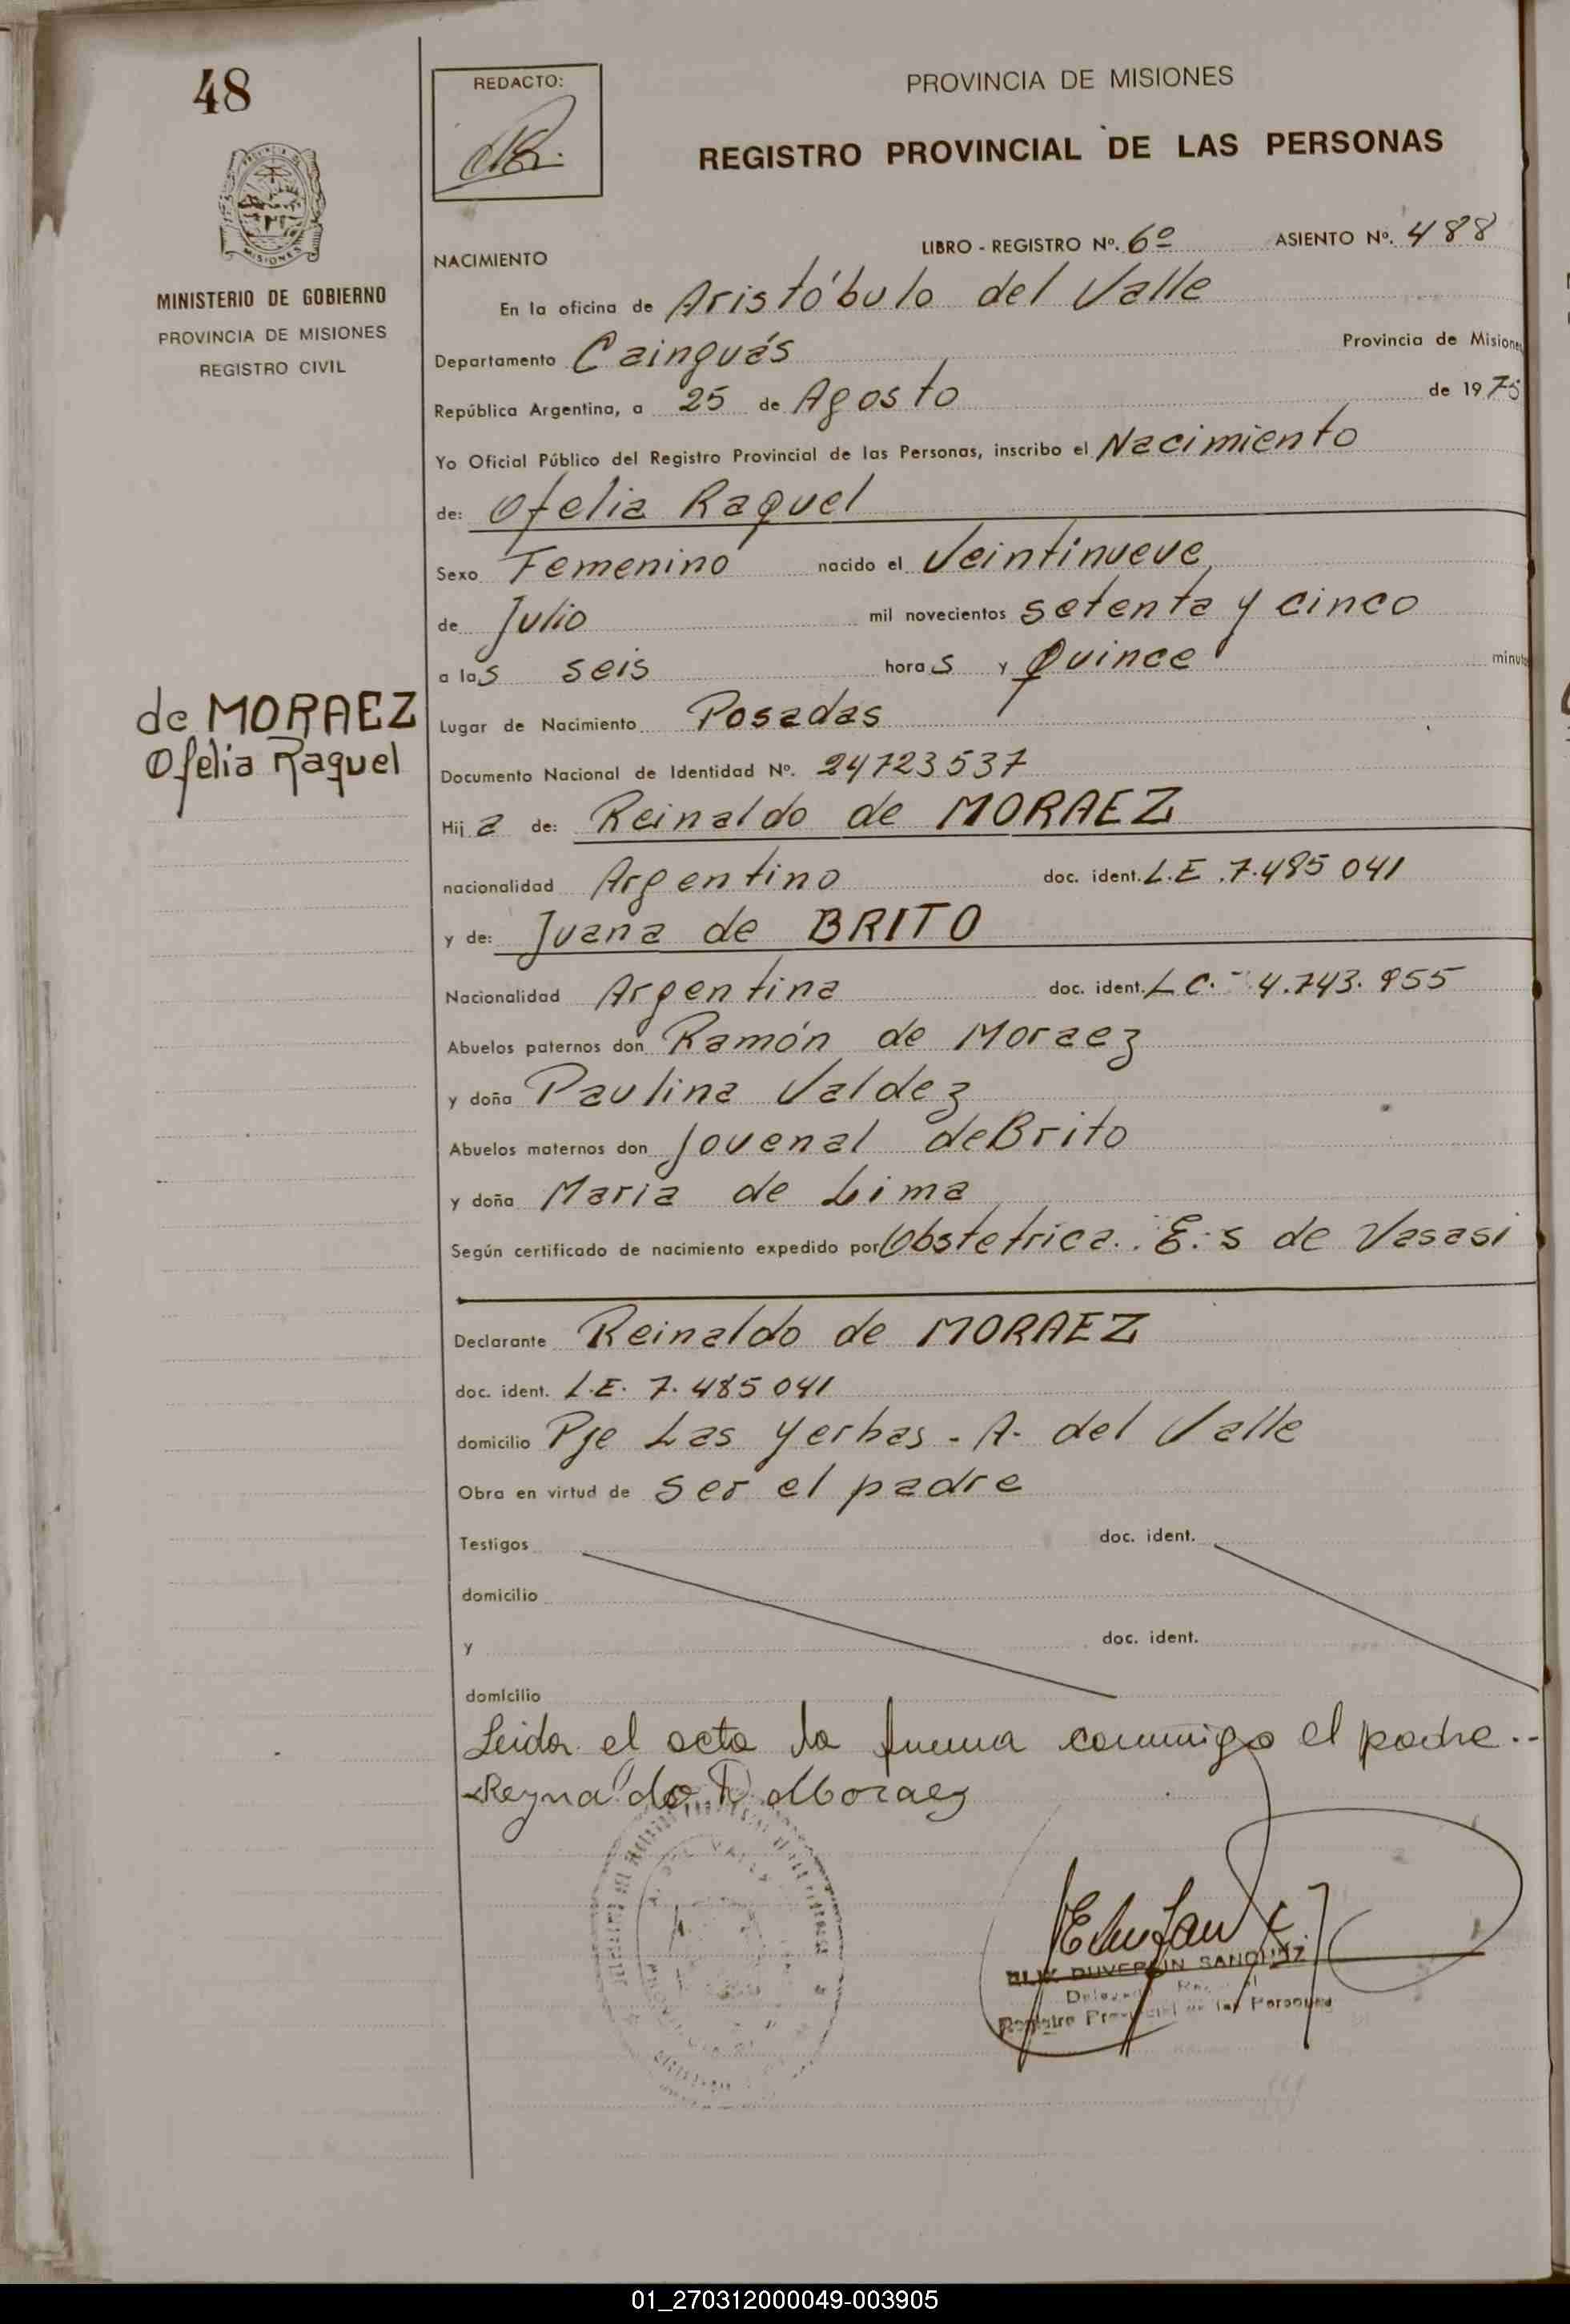 48
REDACTO:
PROVINCIA DE MISIONES
REGISTRO PROVINCIAL DE LAS PERSONAS
MISIONES
MINISTERIO DE GOBIERNO
PROVINCIA DE MISIONES
REGISTRO CIVIL
NACIMIENTO LIBRO - REGISTRO Nº. 6º ASIENTO Nº. 488
En la oficina de Aristóbulo del Valle
Departamento Cainguás Provincia de Misiones
República Argentina, a 25 de Agosto de 1975
Yo Oficial Público del Registro Provincial de las Personas, inscribo el Nacimiento
de: Ofelia Raquel
Sexo Femenino nacido el Veintinueve
de Julio mil novecientos setenta y cinco
a las seis horas y Quince minutos
de MORAEZ
Ofelia Raquel
Lugar de Nacimiento Posadas
Documento Nacional de Identidad Nº. 24723537
Hija de: Reinaldo de MORAEZ
nacionalidad Argentino doc. ident. L.E. 7.485 041
y de: Juana de BRITO
Nacionalidad Argentina doc. ident. L C. - 4.743.955
Abuelos paternos don Ramón de Moraez
y doña Paulina Valdez
Abuelos maternos don Jovenal deBrito
y doña Maria de Lima
Según certificado de nacimiento expedido por Obstetrica.. E. S de Vasasi
Declarante Reinaldo de MORAEZ
doc. ident. L.E. 7.485 041
domicilio Pje Las Yerbas - A. del Valle
Obra en virtud de ser el padre
Testigos doc. ident.
domicilio
y doc. ident.
domicilio
Leida el acta la firma conmigo el padre..-
Reynaldo D Moraez
Registro Provincial de las Personas
01_270312000049-003905